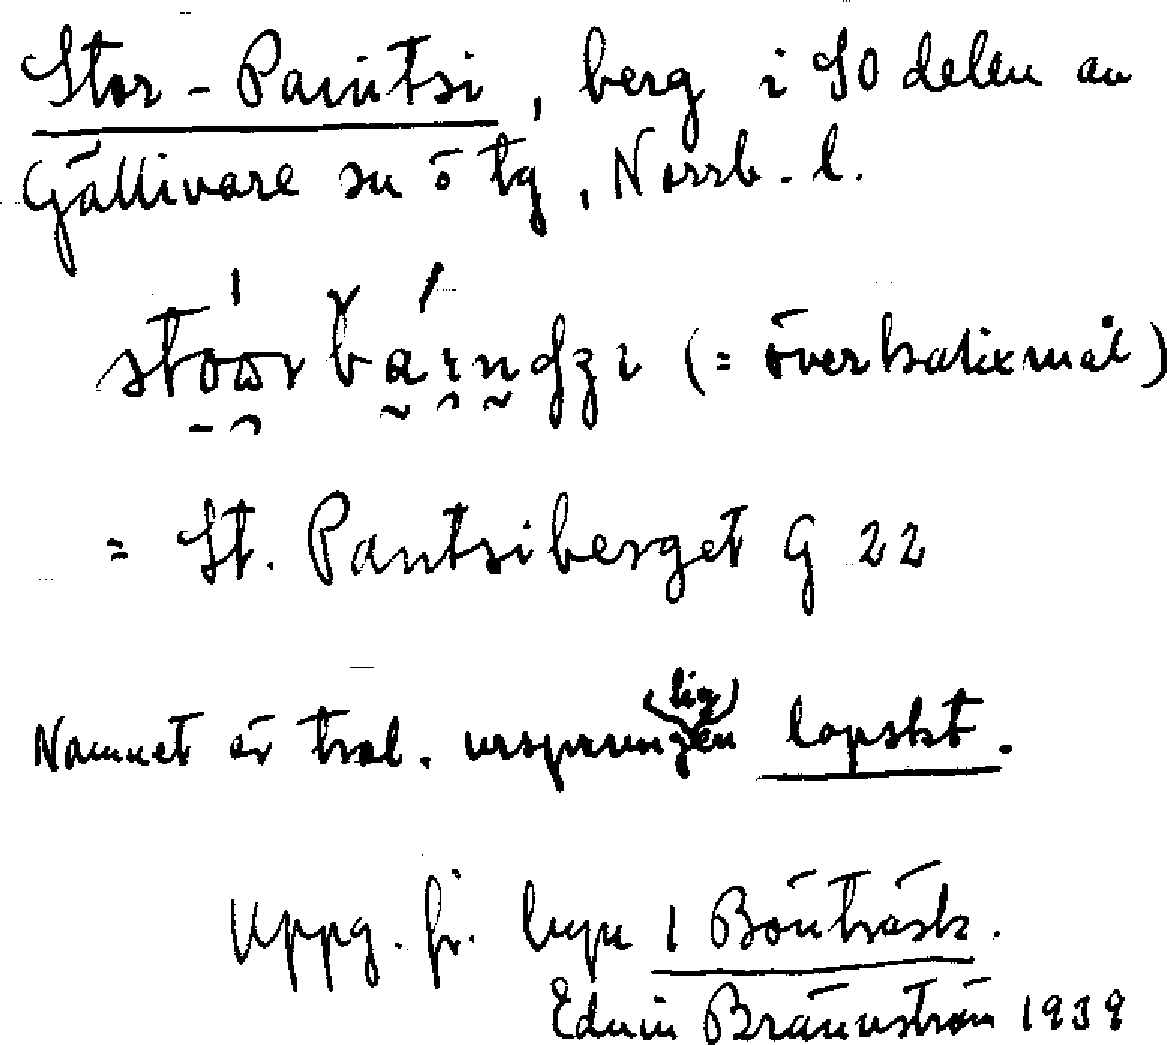 Stor-Paintsi, berg i SO delen av
Gällivare sn o tg, Norrb. l.
(= överkalixmål)
= St. Pantsiberget G 22
Namnet är trol. ursprung(lig)en lapskt.
Uppg. fr. byn 1 Bönträsk.
Edvin Brännström 1939